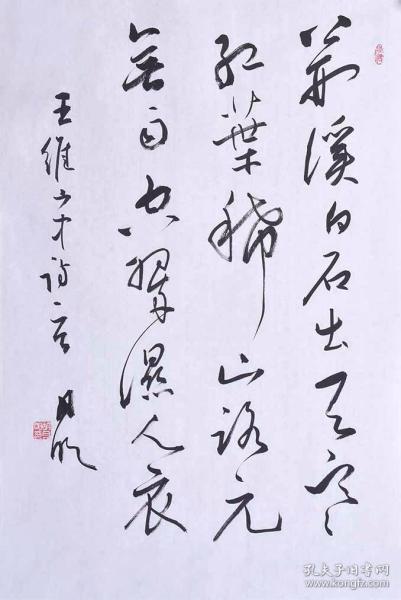 荊溪白石出天寒
紅葉稀山路元
無雨空翠濕人衣
王維山中詩一首
孔夫子旧书网
www.kongfz.com